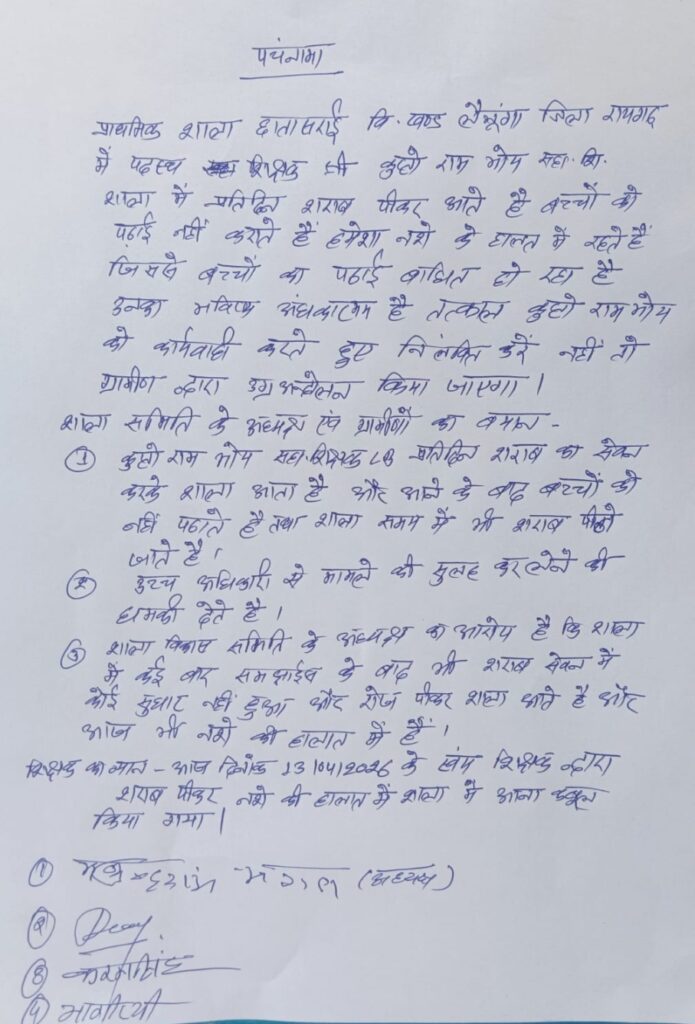 पचंनामा
प्राथमिक शाला छातासराई वि. खण्ड लैलूंगा जिला रायगढ़
में पदस्थ शिक्षक श्री कुहरो राम भोय सहा. शि.
शाला में प्रतिदिन शराब पीकर आते है बच्चों को
पढ़ाई नहीं कराते हैं हमेशा नशे के हालत में रहते हैं
जिससे बच्चों का पढाई बाधित हो रहा है
उनका भविष्य अंधकारमय है तत्काल राम भोय
को कार्यवाही करते हुए निलंबित करें नहीं तो
ग्रामीण द्वारा उग्र अन्दोलन किया जाएगा।
शाला समिति के अध्यक्ष एवं ग्रामीणों का बयान -
① राम भोय सहा. शिक्षक LB प्रतिदिन शराब का सेवन
करके शाला आता है और आने के बाद बच्चों को
नहीं पढाते है तथा शाला समय में भी शराब पीने
जाते है।
② उच्च अधिकारी से मामले को सुलह कर लेने की
धमकी देते है।
③ शाला विकास समिति के अध्यक्ष का आरोप है कि शाला
में कई बार समझाईस के बाद भी शराब सेवन में
कोई सुधार नहीं हुआ और रोज पीकर शाला आते है और
आज भी नशे की हालात में हैं।
शिक्षक का - आज दिनांक 13/04/2026 के स्वंय शिक्षक द्वारा
शराब पीकर नशे की हालात में शाला में आना कबूल
किया गया।
① (अध्यक्ष)
②
③ करमसिंह
④